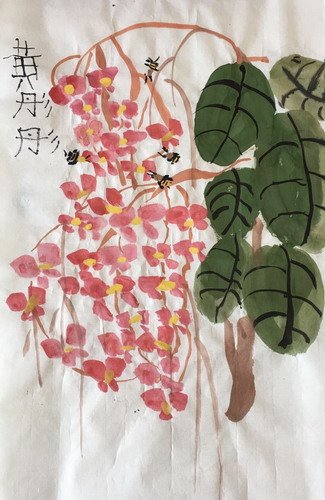 黄彤彤